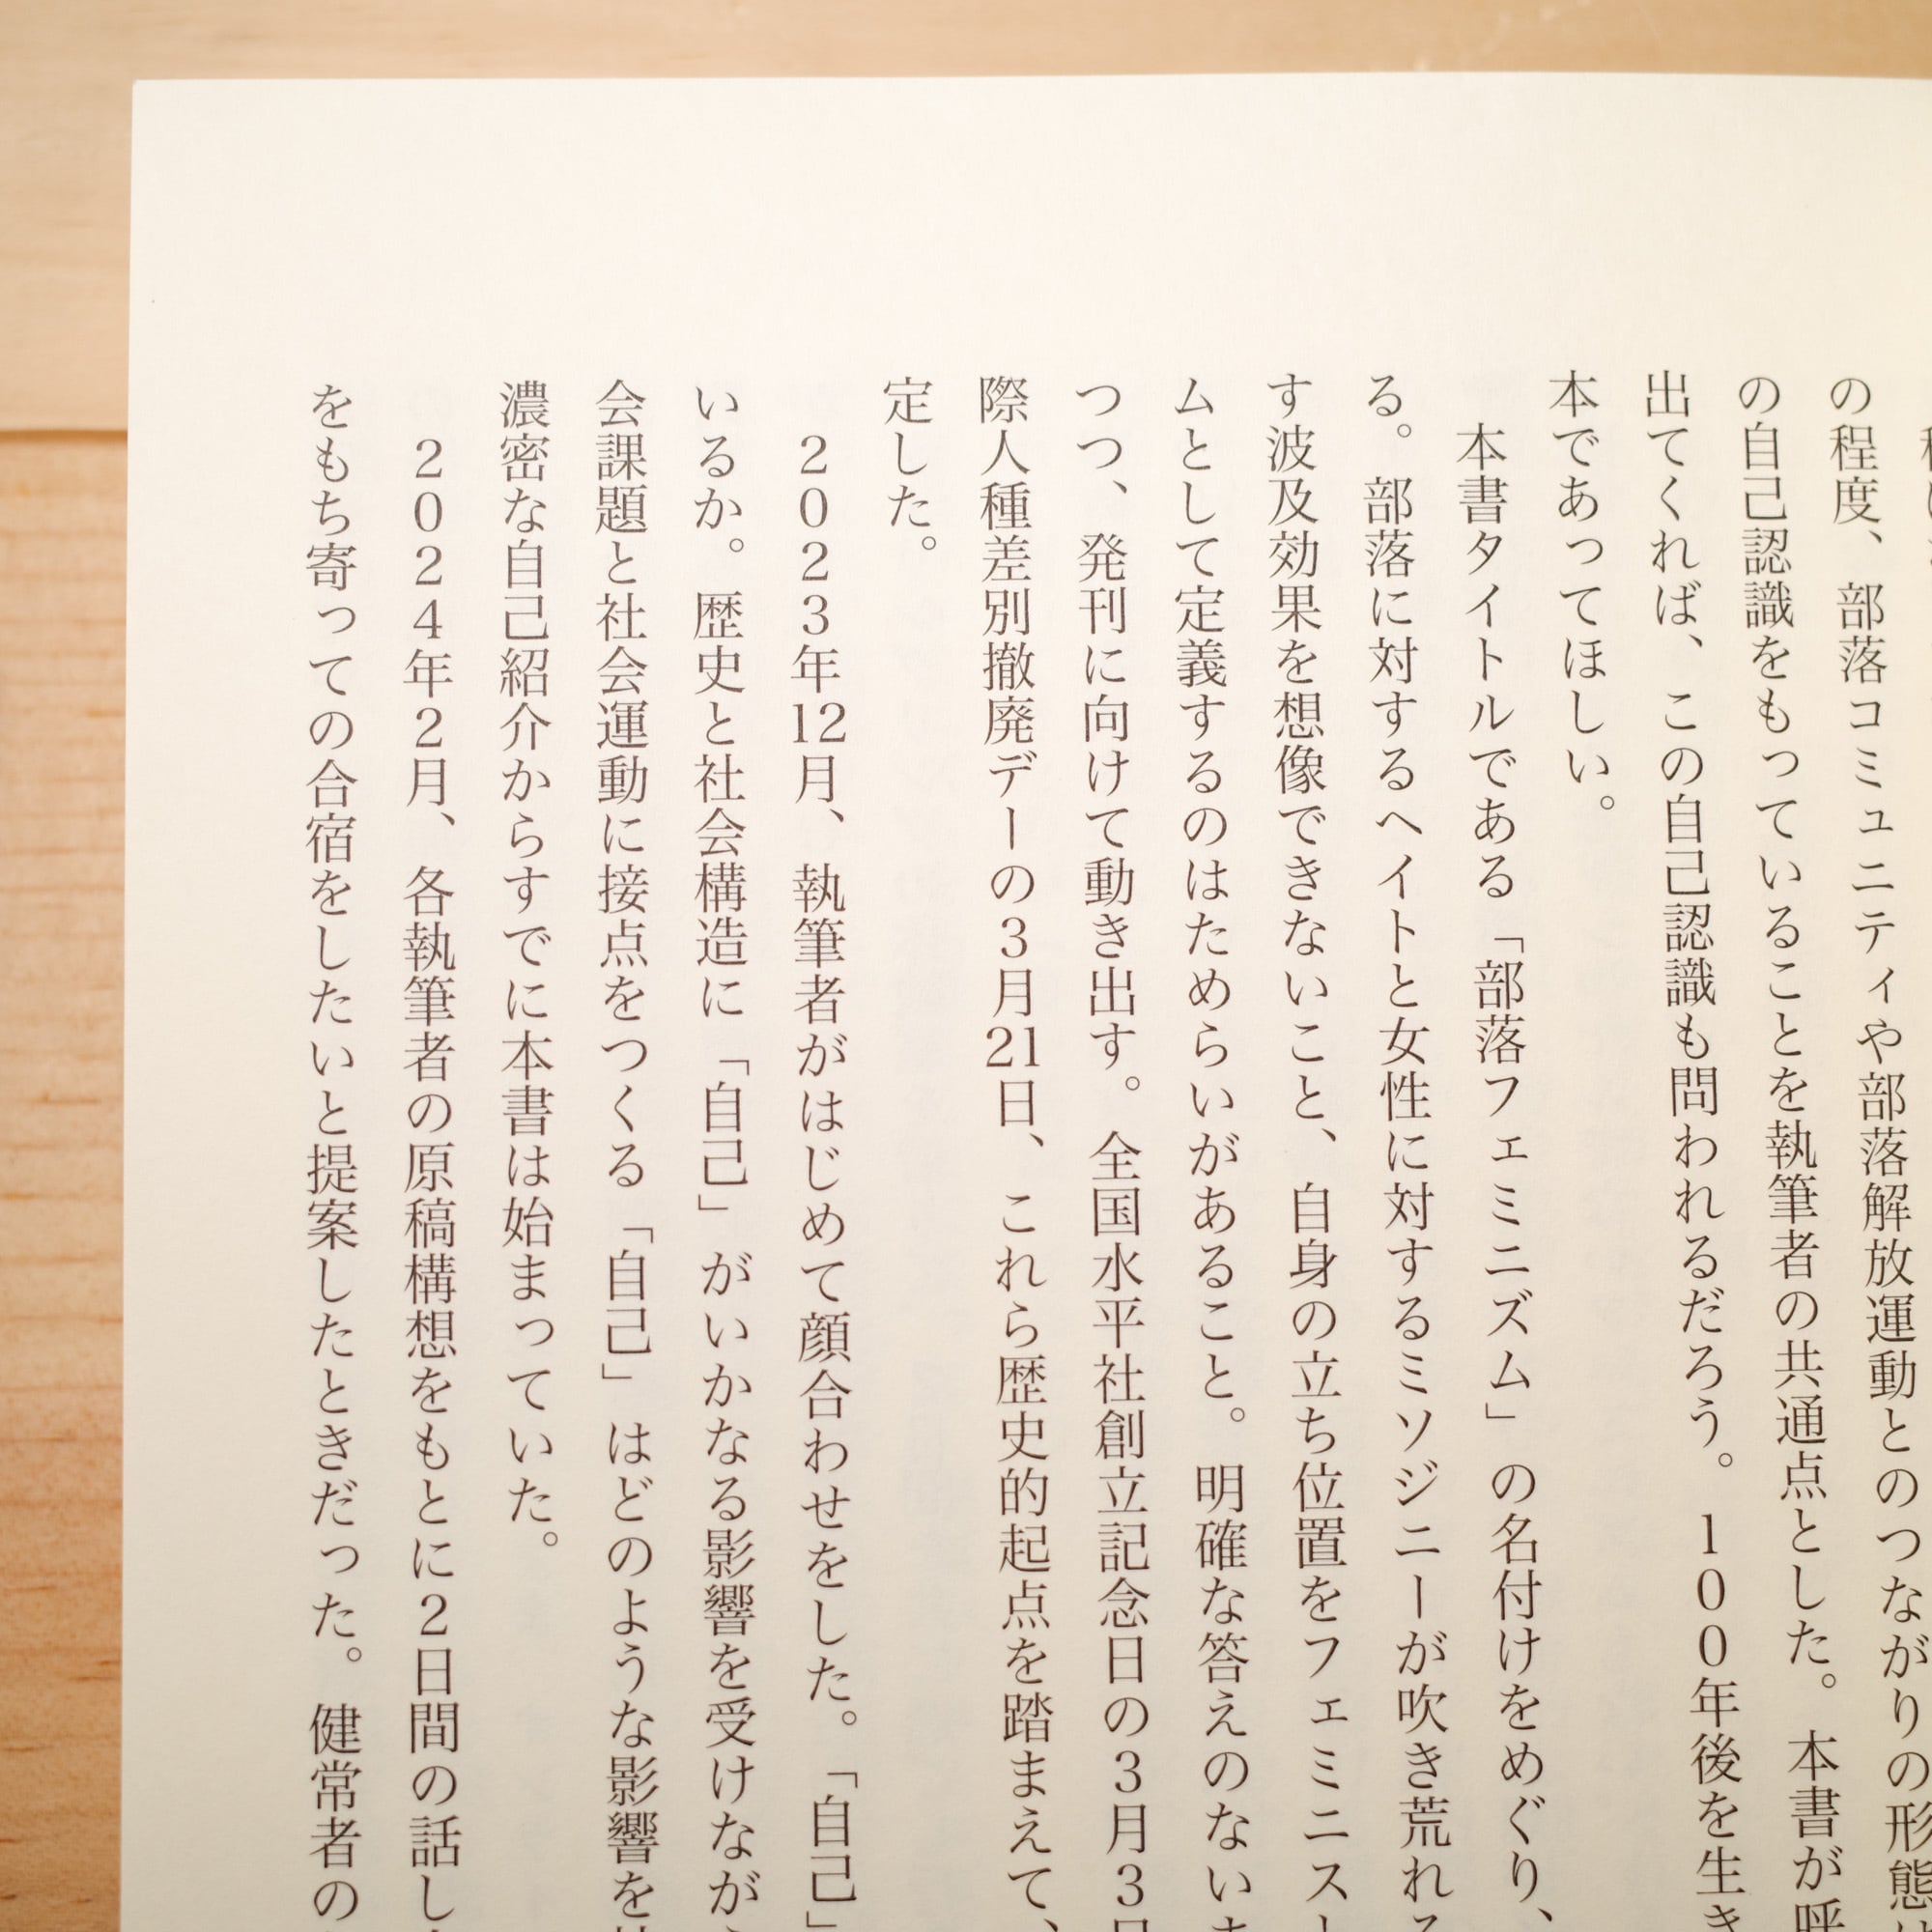 の程度、部落コミュニティや部落解放運動とのつながりの形態
の自己認識をもっていることを執筆者の共通点とした。本書が呼
出てくれば、この自己認識も問われるだろう。100年後を生き
本であってほしい。
本書タイトルである「部落フェミニズム」の名付けをめぐり、
る。部落に対するヘイトと女性に対するミソジニーが吹き荒れる
す波及効果を想像できないこと、自身の立ち位置をフェミニス
ムとして定義するのはためらいがあること。明確な答えのないま
つつ、発刊に向けて動き出す。全国水平社創立記念日の3月3日
際人種差別撤廃デーの3月21日、これら歴史的起点を踏まえて、
定した。
2023年12月、執筆者がはじめて顔合わせをした。「自己」
いるか。歴史と社会構造に「自己」がいかなる影響を受けなが
会課題と社会運動に接点をつくる「自己」はどのような影響を
濃密な自己紹介からすでに本書は始まっていた。
2024年2月、各執筆者の原稿構想をもとに2日間の話し
をもち寄っての合宿をしたいと提案したときだった。健常者の